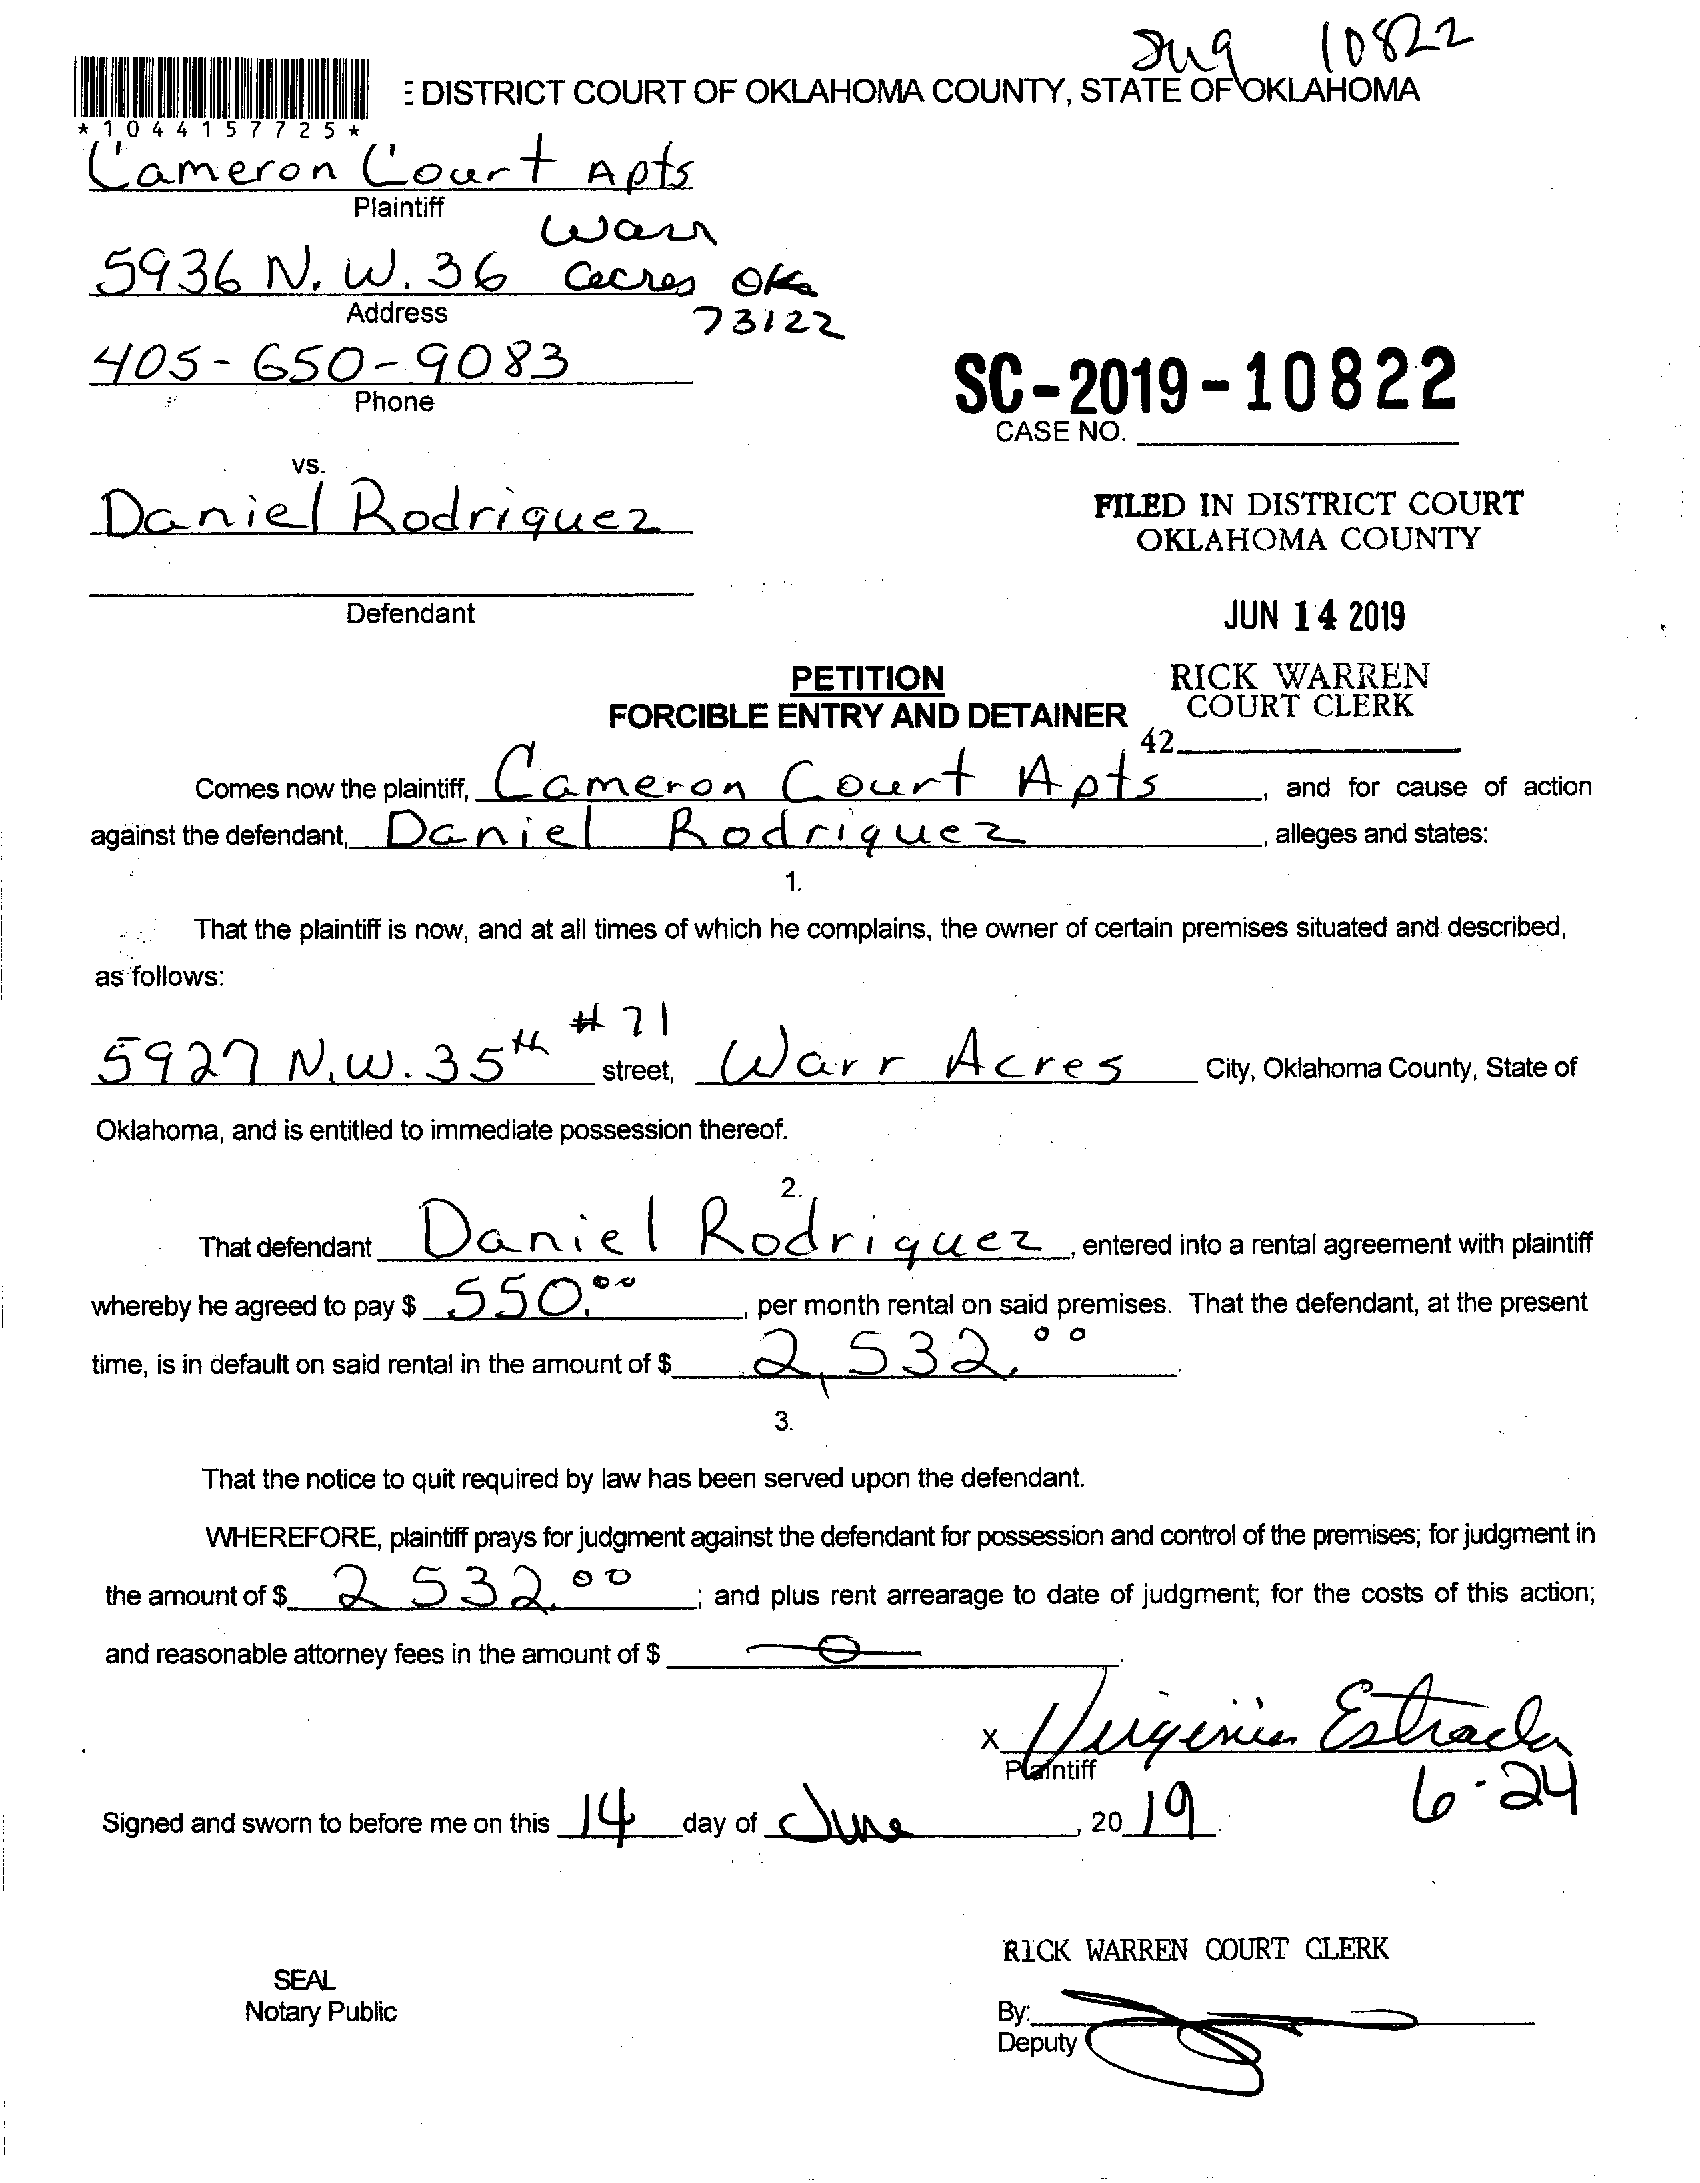 10822
E DISTRICT COURT OF OKLAHOMA COUNTY, STATE OF OKLAHOMA
*1044157725*
Cameron Court Apts
Plaintiff
Warr
5936 N. W. 36 Acres Okla
Address
73122
405-650-9083
Phone
SC-2019-10822
CASE NO.
vs.
Daniel Rodriquez
FILED IN DISTRICT COURT
OKLAHOMA COUNTY
Defendant
JUN 14 2019
PETITION
RICK WARREN
FORCIBLE ENTRY AND DETAINER
COURT CLERK
42
Comes now the plaintiff, Cameron Court Apts, and for cause of action
against the defendant, Daniel Rodriquez, alleges and states:
1.
That the plaintiff is now, and at all times of which he complains, the owner of certain premises situated and described,
as follows:
5927 N.W. 35th #71 street, Warr Acres City, Oklahoma County, State of
Oklahoma, and is entitled to immediate possession thereof.
2.
That defendant Daniel Rodriquez, entered into a rental agreement with plaintiff
whereby he agreed to pay $ 550.00, per month rental on said premises. That the defendant, at the present
time, is in default on said rental in the amount of $ 2,532.00.
3.
That the notice to quit required by law has been served upon the defendant.
WHEREFORE, plaintiff prays for judgment against the defendant for possession and control of the premises; for judgment in
the amount of $ 2532.00; and plus rent arrearage to date of judgment; for the costs of this action;
and reasonable attorney fees in the amount of $ -0-.
x Virginia Estrada
Plaintiff
6-24
Signed and sworn to before me on this 14 day of June, 2019.
RICK WARREN COURT CLERK
SEAL
Notary Public
By:
Deputy